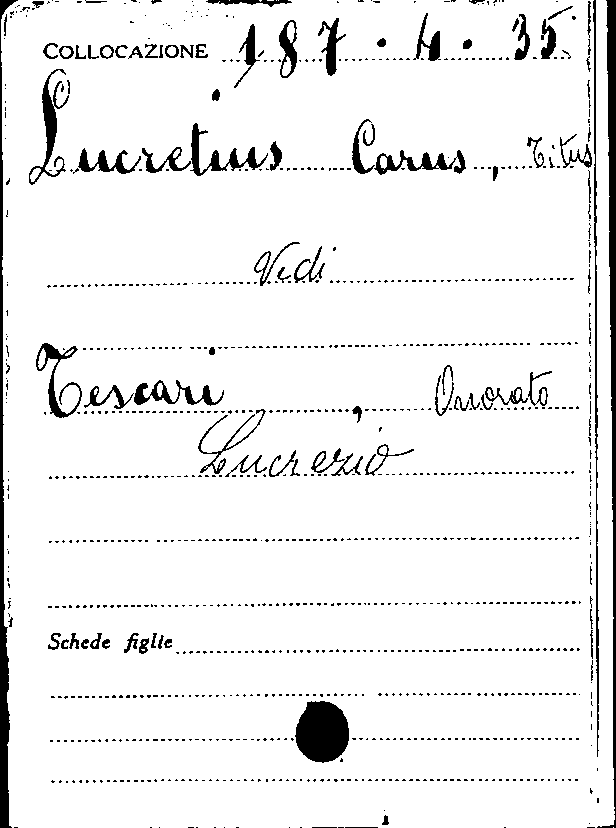 COLLOCAZIONE 187.4.35.
Lucretius Carus, Titus
Vedi
Tescari, Onorato
Lucrezio
Schede figlie